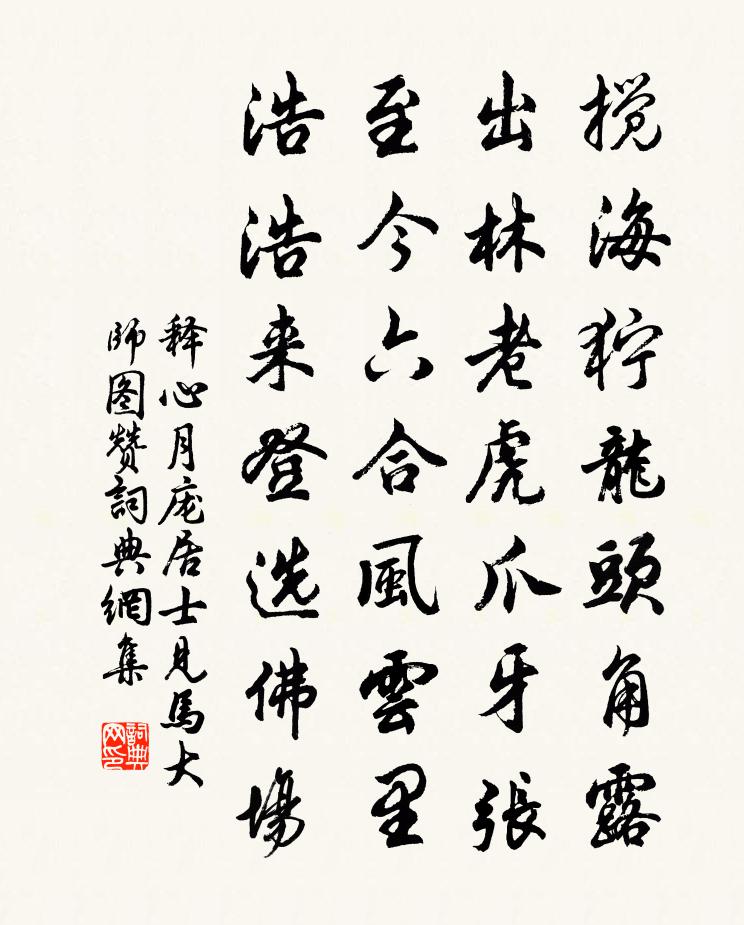 搅海狞龍頭角露
出林老虎爪牙張
至今六合風雲里
浩浩来登选佛場
释心月庞居士见馬大
師图赞詞典網集
詞典网印